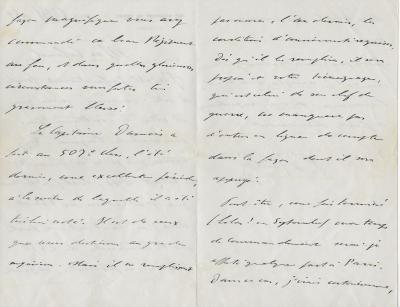 façon magnifique vous avez
commandé ce beau Régiment
au feu, et dans quelles glorieuses
circonstances vous fûtes très
grièvement blessé.
Le Capitaine Damois a
fait au 507e chars, l'été
dernier, une excellente période,
à la suite de laquelle il a été
très bien noté. Il est de ceux
que nous destinons au grade
supérieur. Mais il ne remplissait
pas encore, l'an dernier, les
conditions d'ancienneté requises.
Dès qu'il les remplira, il sera
proposé et votre témoignage,
qui est celui de son chef de
guerre, ne manquera pas
d'entrer en ligne de compte
dans la façon dont il sera
appuyé.
Peut être, une fois terminé
(hélas! en Septembre) mon temps
de commandement serai-je
affecté quelque part à Paris.
Dans ce cas, j'irais certainement,